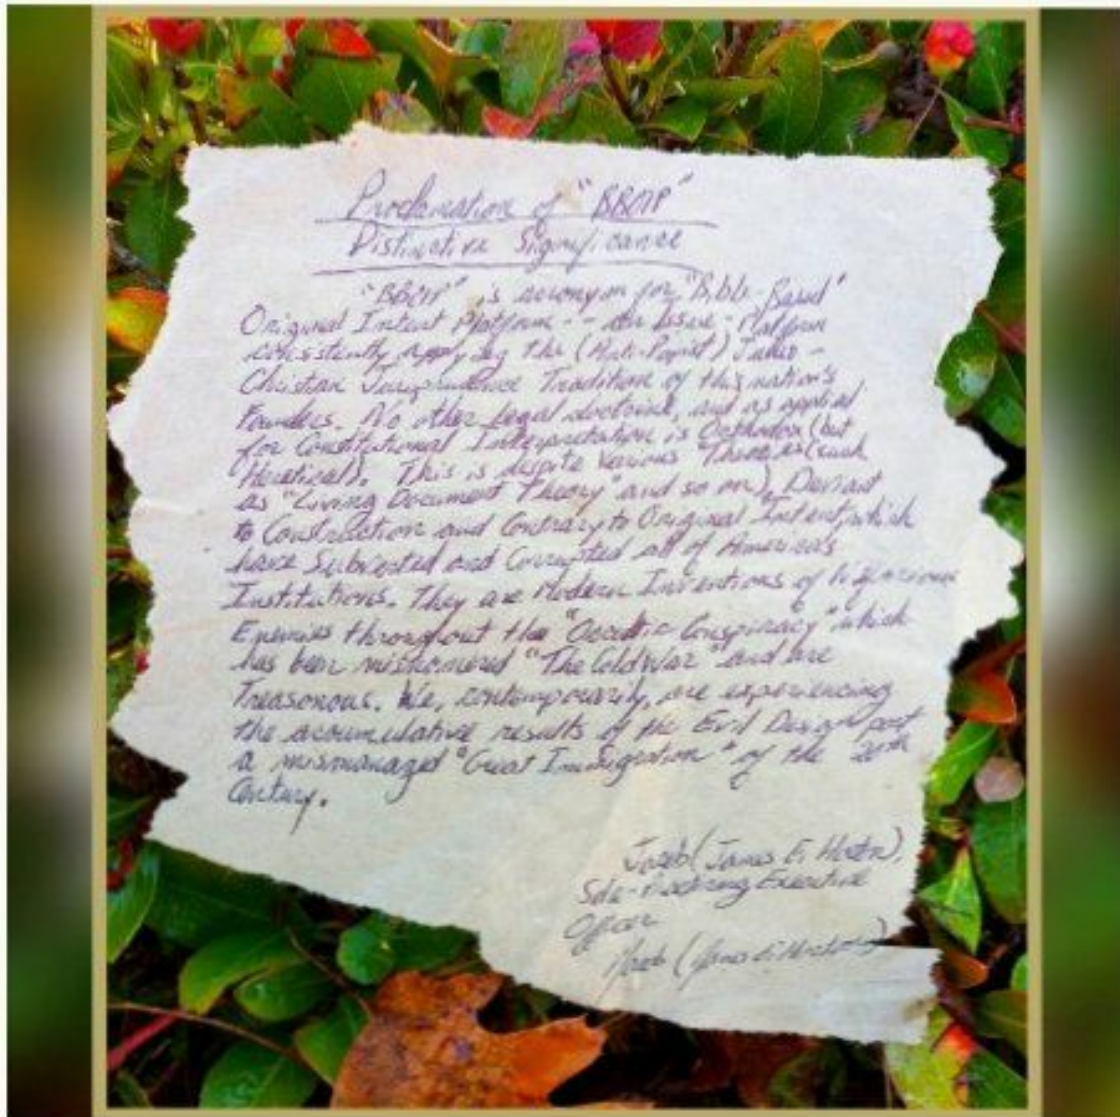 Proclamation of "BBOIP"
Distinctive Significance
"BBOIP" is acronym for "Bible-Based"
Original Intent Platform -- An Issue; Platform
consistently applying the (Anti-Papist) Judeo-
Christian Jurisprudence Tradition of this nation's
Founders. No other legal doctrine, and as applied
for Constitutional Interpretation is Orthodox (but
Heretical). This is despite various Theories (such
as "Living Document Theory" and so on), Deviant
to Construction and Contrary to Original Intent, which
have Subverted and Corrupted all of America's
Institutions. They are Modern Inventions of
Enemies throughout the Conspiracy" which
has been mishomered "The Cold War" and are
Treasonous. We, contemporarily, are experiencing
the accumulative results of the Evil Design part
a mismanaged "Great Immigration" of the 20th
Century.
(James E.
Executive
Officer